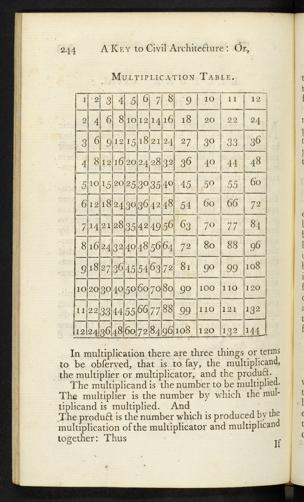 244 A KEY to Civil Architecture: Or,
MULTIPLICATION TABLE.
1 2 3 4 5 6 7 8 9 10 11 12
2 4 6 8 10 12 14 16 18 20 22 24
3 6 9 12 15 18 21 24 27 30 33 36
4 8 12 16 20 24 28 32 36 40 44 48
5 10 15 20 25 30 35 40 45 50 55 60
6 12 18 24 30 36 42 48 54 60 66 72
7 14 21 28 35 42 49 56 63 70 77 84
8 16 24 32 40 48 56 64 72 80 88 96
9 18 27 36 45 54 63 72 81 90 99 108
10 20 30 40 50 60 70 80 90 100 110 120
11 22 33 44 55 66 77 88 99 110 121 132
12 24 36 48 60 72 84 96 108 120 132 144
In multiplication there are three things or terms
to be obſerved, that is to ſay, the multiplicand,
the multiplier or multiplicator, and the product.
The multiplicand is the number to be multiplied.
The multiplier is the number by which the mul-
tiplicand is multiplied. And
The product is the number which is produced by the
multiplication of the multiplicator and multiplicand
together: Thus
If